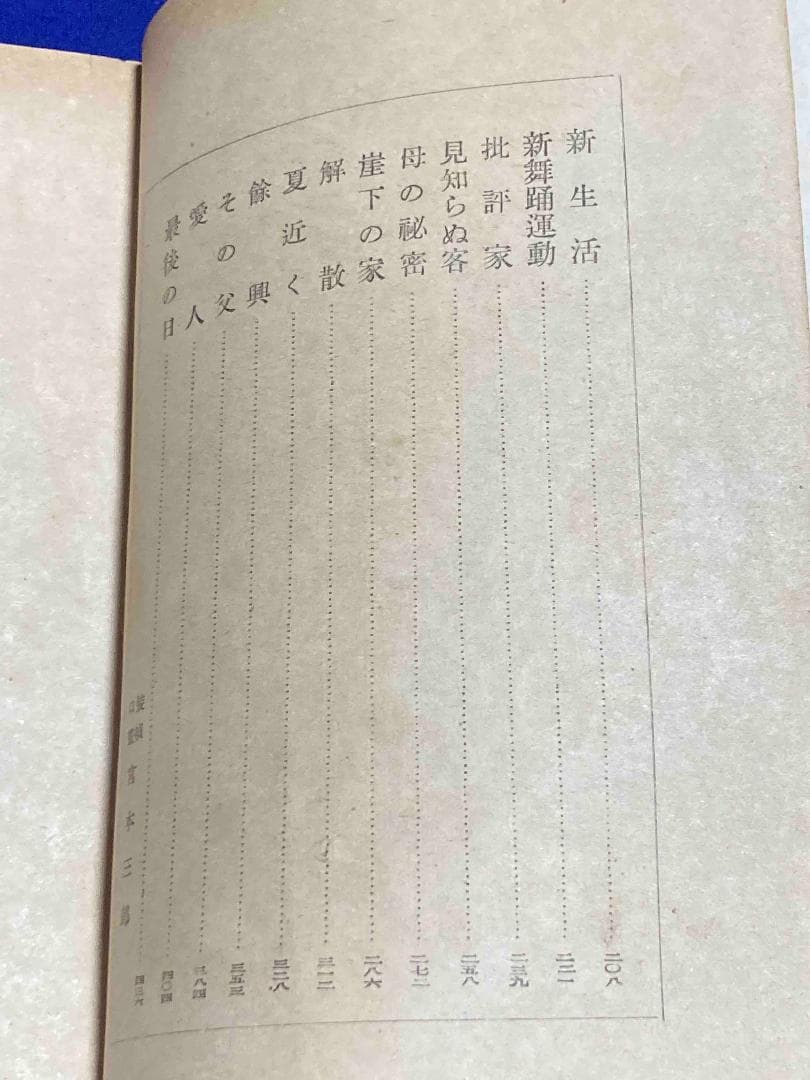 新生活……二〇八
新舞踊運動……二二一
批評家……二三九
見知らぬ客……二五八
母の祕密……二七二
崖下の家……二八六
解散……三一二
夏近く……三二八
餘興……三五三
その父……三八四
愛人……四〇四
最後の日……四三六
裝幀
口繪
宮本三郎